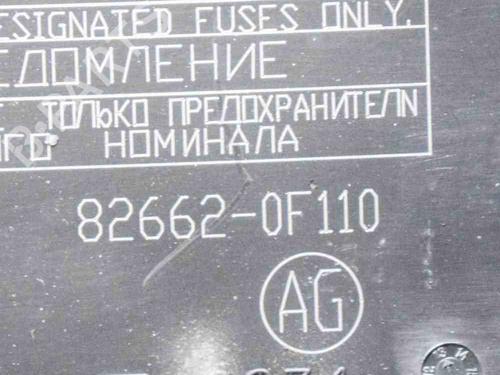 DESIGNATED FUSES ONLY.
ЕДОМЛЕНИЕ
ТОЛЬКО ПРЕДОХРАНИТЕЛИ
НОМИНАЛА
82662-0F110
AG